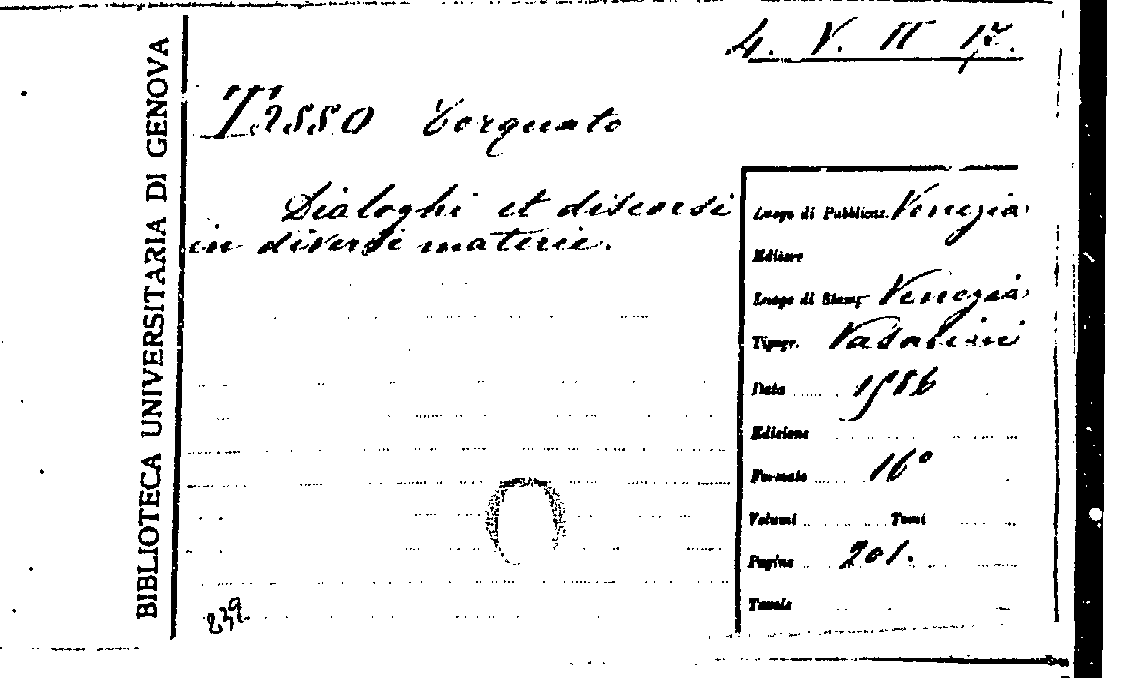 BIBLIOTECA UNIVERSITARIA DI GENOVA
4. V. II 17.
Tasso Torquato
Dialoghi et discorsi
in diversi materie.
Luogo di Pubblicaz. Venezia
Editore
Luogo di Stamp. Venezia
Tipogr. Vasalini
Data 1586
Edizione
Formato 16°
Volumi Tomi
Pagine 201.
Tavole
239